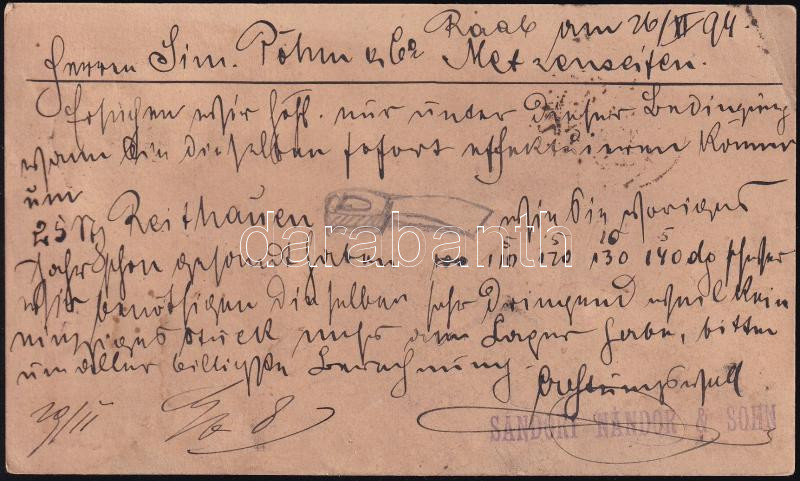 Raab am 26/II 94.
Herrn Sim. Pöhm & Co Metzenseifen.
Ersuchen wir höfl. nur unter dieser Bedingung
wenn Sie dieselben sofort effektuieren können
um
25 St Reithauen wie Sie voriges
Jahr schon gesandt haben 110 120 130 140 dg
5 5 10 5
wir benöthigen dieselben sehr dringend weil kein
einziges Stück mehr am Lager habe, bitten
um aller billigste Berechnung.
Achtungsvoll
28/II 8
SÁNDORI NÁNDOR & SOHN
darabanth.com